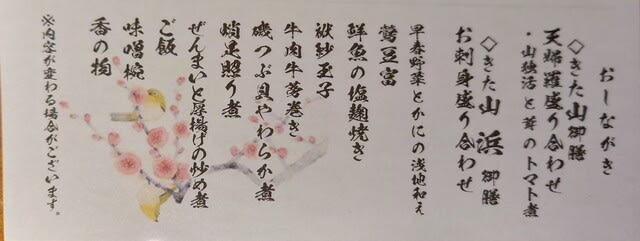 おしながき
◇きた山御膳
天婦羅盛り合わせ
・山独活と茸のトマト煮
◇きた山浜御膳
お刺身盛り合わせ
早春野菜とかにの浅地和え
鶯豆富
鮮魚の塩麹焼き
袱紗玉子
牛肉牛蒡巻き
磯つぶ貝やわらか煮
蛸足照り煮
ぜんまいと厚揚げの炒め煮
ご飯
味噌椀
香の物
※内容が変わる場合がございます。